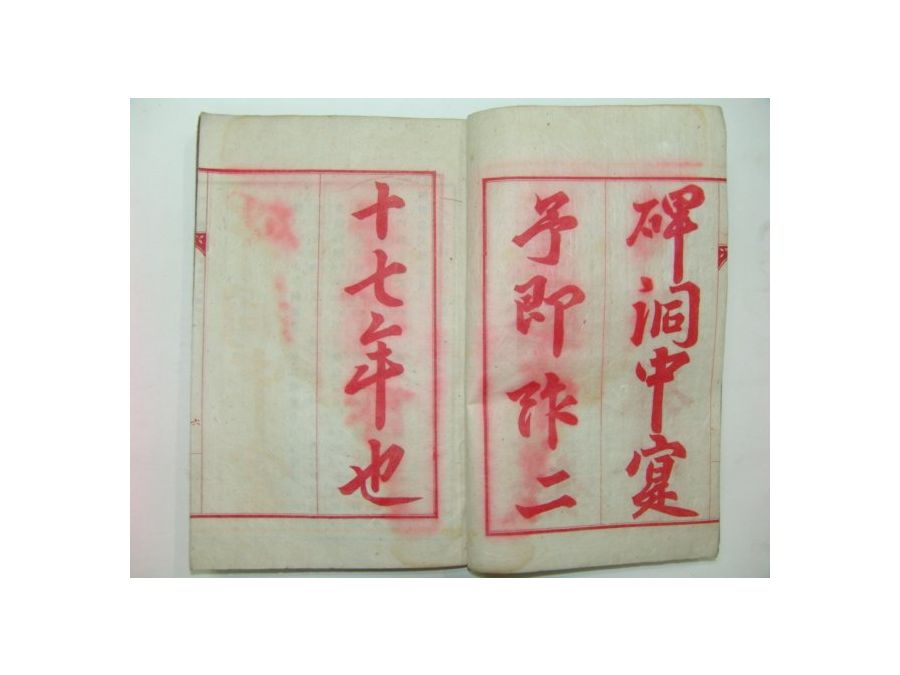 碑洞中寔
予即祚二
十七年也
六